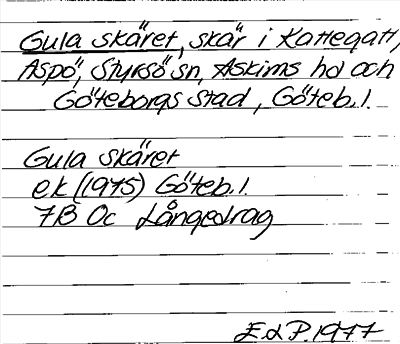 Gula skäret, skär i Kattegatt,
Aspö, Styrsö sn, Askims hd och
Göteborgs stad, Göteb. l.
Gula skäret
ek (1975) Göteb. l.
7B 0c Långedrag
E d P. 1977